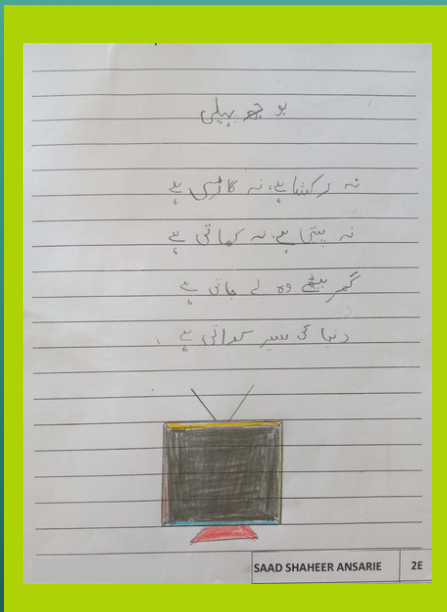 بوجھ پہیلی
نہ رکشا ہے، نہ گاڑی ہے
نہ پیتی ہے، نہ کھاتی ہے
گھر بیٹھے وہ لے جاتی ہے
دنیا کی سیر کراتی ہے۔
SAAD SHAHEER ANSARIE 2E